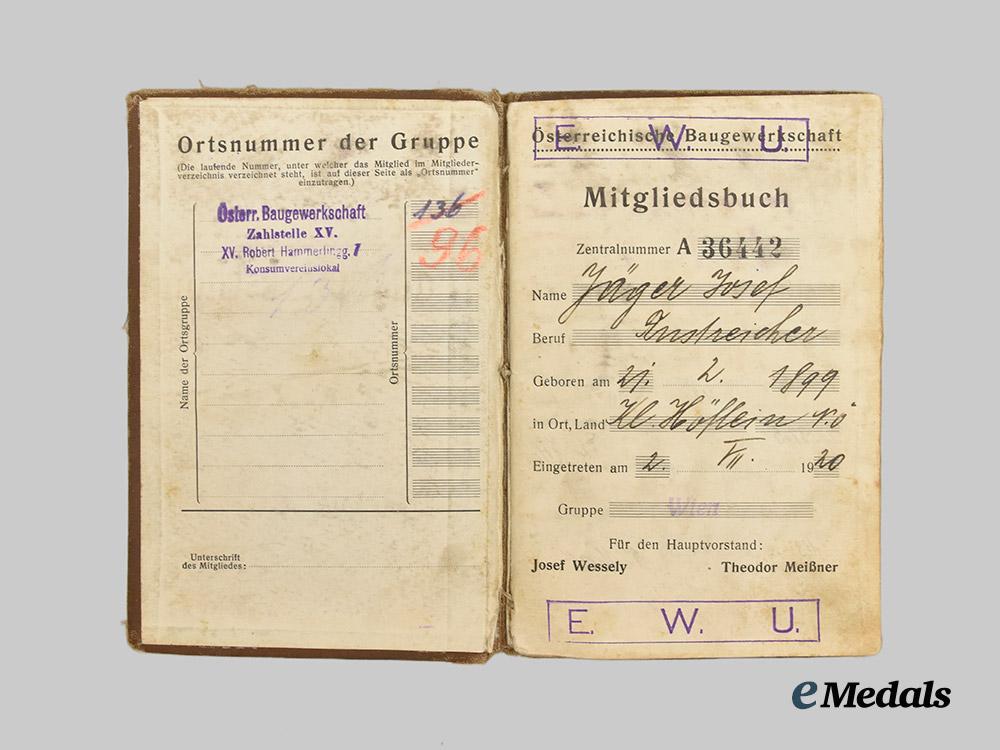 Ortsnummer der Gruppe
(Die laufende Nummer, unter welcher das Mitglied im Mitglieder-
verzeichnis verzeichnet steht, ist auf dieser Seite als „Ortsnummer"
einzutragen.)
Österr. Baugewerkschaft
Zahlstelle XV.
XV. Robert Hammerlingg. 1
Konsumvereinslokal
136
96
Name der Ortsgruppe
Ortsnummer
Unterschrift
des Mitgliedes:
Österreichische Baugewerkschaft
E. W. U.
Mitgliedsbuch
Zentralnummer A 36442
Name Jäger Josef
Beruf Anstreicher
Geboren am 21. 2. 1899
in Ort, Land Kl. Höflein N.Ö
Eingetreten am 2. VII. 1920
Gruppe Wien
Für den Hauptvorstand:
Josef Wessely Theodor Meißner
E. W. U.
eMedals